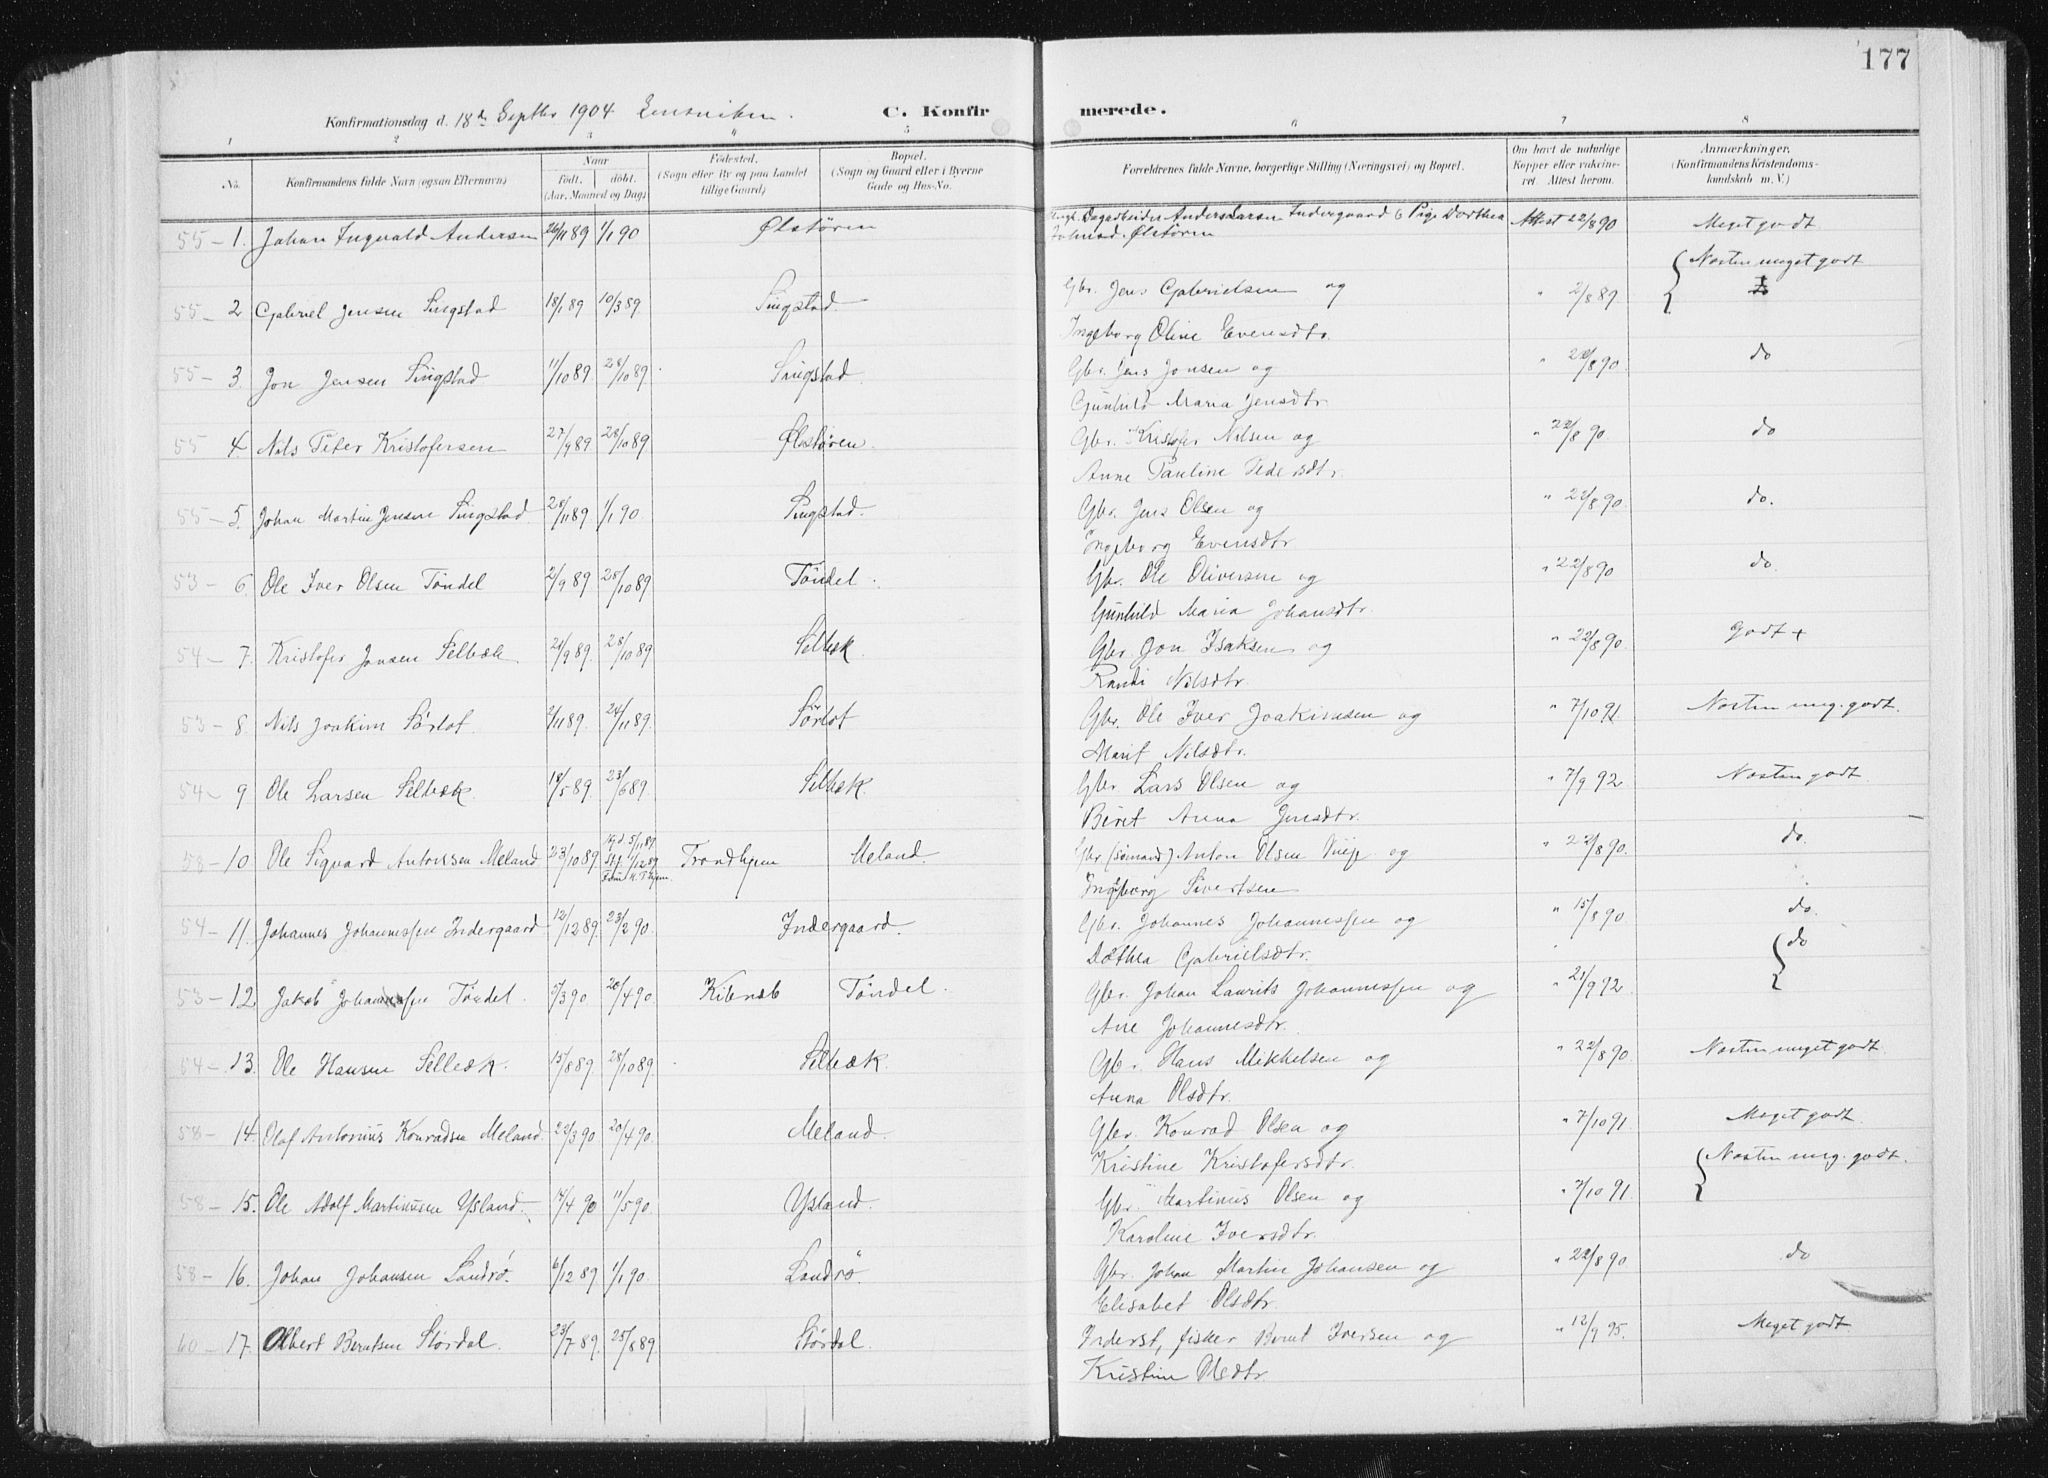 177
Konfirmationsdag d. 18de Septbr 1904 C. Konfirmerede.
1 2 3 4 5 6 7 8
No. Konfirmandens fulde Navn (ogsaa Efternavn) Naar født, døbt. (Aar, Maaned og Dag) Fødested. (Sogn eller By og paa Landet tillige Gaard) Bopæl. (Sogn og Gaard eller i Byerne Gade og Hus-No. Forældrenes fulde Navne, borgerlige Stilling (Næringsvei) og Bopæl. Om havt de naturlige Kopper eller vaccineret. Attest herom. Anmærkninger. (Konfirmandens Kristendomskundskab m. V.)
55 - 1. Johan Ingvald Andersen 26/11 89 1/1 90 Ølstøren Dagarbeider Anders Larsen Indergaard & Pige Dorthea Ølstøren Attest 22/8 90 Meget godt
55 - 2 Gabriel Jensen Singstad 18/1 89 10/3 89 Singstad Gbr. Jens Gabrielsen og " 2/8 89 Næsten meget godt
Ingeborg Oline Evensdtr.
55 - 3. Jon Jensen Singstad 11/10 89 28/10 89 Singstad Gbr. Jens Jonsen og " 22/8 90. do
Gunhild Maria Jensdtr.
55 4. Nils Peter Kristofersen 27/9 89 28/10 89 Ølstøren. Gbr. Kristofer Nilsen og " 22/8 90 do
Anne Pauline Pedersdtr.
55 - 5. Johan Martin Jensen Singstad 28/11 89 1/1 90 Singstad. Gbr. Jens Olsen og " 22/8 90. do.
Ingeborg Evensdtr
53 - 6. Ole Iver Olsen Tøndel 2/9 89 28/10 89 Tøndel. Gbr. Ole Oliversen og " 22/8 90 do.
Gunhild Maria Johansdtr.
54 - 7. Kristofer Jonsen Selbæk 21/9 89. 28/10 89 Selbæk Gbr. Jon Isaksen og " 22/8 90. Godt +
Randi Nilsdtr.
53 - 8. Nils Joakim Sørlot 2/11 89. 24/11 89. Sørlot Gbr. Ole Iver Joakimsen og " 7/10 91 Næsten meg. godt.
Marit Nilsdtr.
54 - 9 Ole Larsen Selbæk. 18/5 89. 23/6 89. Selbæk. Gbr. Lars Olsen og " 7/9 92 Næsten godt.
Beret Anna Jensdtr.
58 - 10. Ole Sigvard Antonsen Meland 23/10 89. Trondhjem Meland. Gbr. (sømand) Anton Olsen og " 22/8 90. do.
Ingeborg Sivertsen
54 - 11. Johannes Johannessen Indergaard 12/12 89. 23/2 90. Indergaard. Gbr. Johannes Johannessen og " 15/8 90. do.
Dorthea Gabrielsdtr.
53 - 12. Jakob Johannessen Tøndel. 5/3 90 20/4 90. Kilenæb Tøndel. Gbr. Johan Laurits Johannessen og " 21/9 92. do
Ane Johannesdtr.
54 - 13. Ole Hansen Selbæk. 15/8 89. 28/10 89 Selbæk. Gbr. Hans Mikkelsen og " 22/8 90. Næsten meget godt.
Anna Olsdtr.
58 - 14. Olaf Antonius Konradsen Meland. 22/3 90 20/4 90. Meland. Gbr. Konrad Olsen og " 7/10 91 Meget godt.
Kristine Kristofersdtr.
58 - 15. Ole Adolf Martinusen Ysland. 14/4 90 11/5 90. Ysland. Gbr. Martinus Olsen og " 7/10 91. Næsten meg. godt.
Karoline Iversdtr.
58 - 16. Johan Johansen Landrø. 6/12 89 1/1 90 Landrø. Gbr. Johan Martin Johansen og " 22/8 90. do
Elisabet Olsdtr.
60 - 17. Albert Berntsen Størdal. 23/7 89. 25/8 89. Størdal. Inderst, fisker Bernt Iversen og " 12/9 95. Meget godt
Kristine Oledtr.